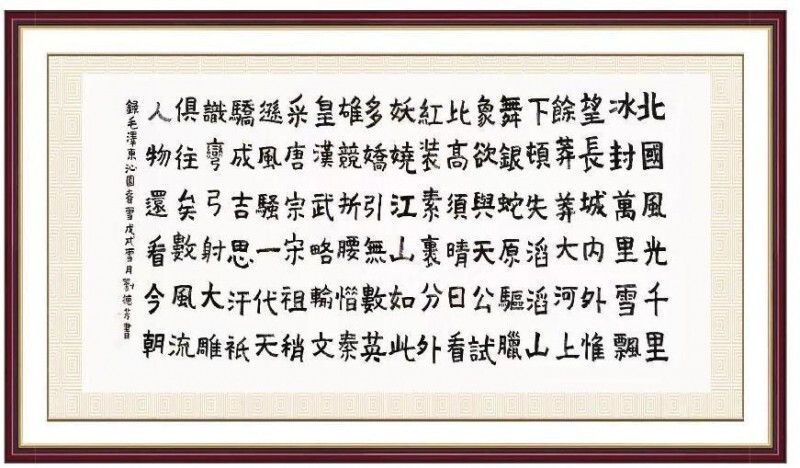 北國風光千里
冰封萬里雪飄
望長城內外惟
餘莽莽大河上
下頓失滔滔山
舞銀蛇原驅臘
象欲與天公試
比高須晴日看
紅裝素裹分外
妖嬈江山如此
多嬌引無數英
雄競折腰惜秦
皇漢武略輸文
采唐宗宋祖稍
遜風騷一代天
驕成吉思汗祇
識彎弓射大雕
俱往矣數風流
人物還看今朝
錄毛澤東沁園春雪戊戌雪月劉德芳書